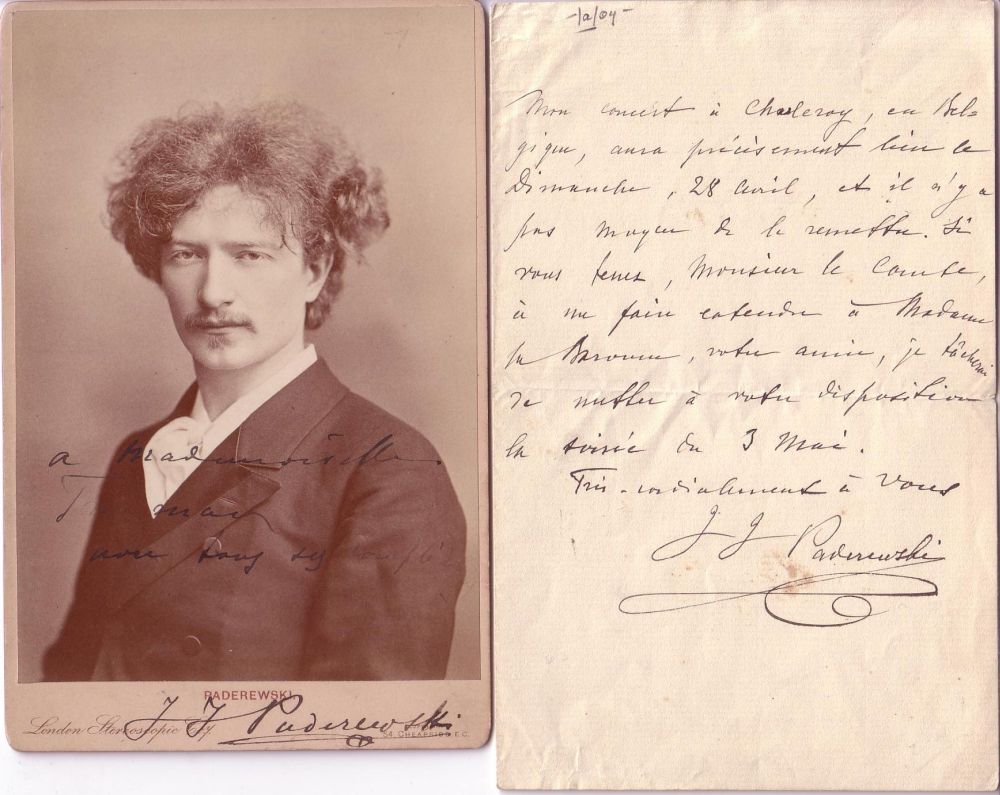 a Mademoiselle
PADEREWSKI
J J Paderewski
London Stereoscopic Coy.
54, CHEAPSIDE. E.C.
Mon concert à Charleroy, en Bel=
gique, aura précisément lieu le
Dimanche, 28 Avril, et il n'y a
pas moyen de le remettre. Si
vous tenez, Monsieur le Comte,
à me faire entendre à Madame
la Baronne, votre amie, je tâcherai
de mettre à votre disposition
la soirée du 3 Mai.
Très-cordialement à vous
J J Paderewski